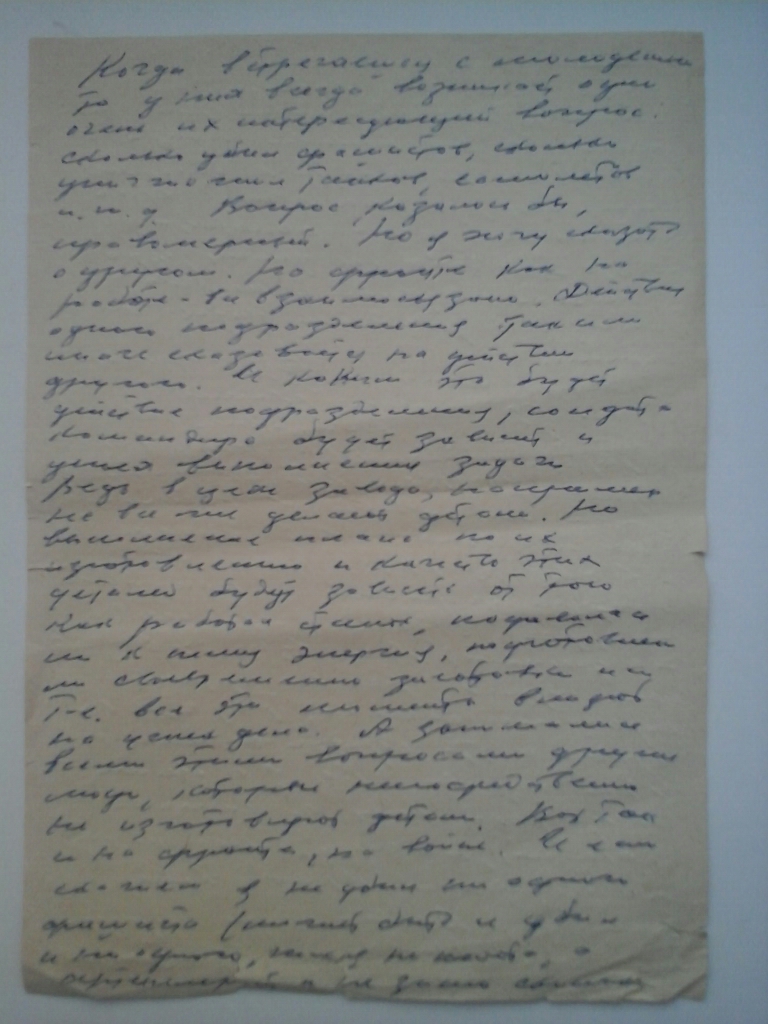 Когда встречаешься с молодежью
то у них всегда возникает один
очень их интересующий вопрос:
сколько убил фашистов, сколько
уничтожил танков, самолетов
и.т.д. Вопрос казалось бы,
правомерный. Но я хочу сказать
о другом. На фронте как на
работе - все взаимосвязано. Действия
одного подразделения так или
иначе сказываются на действии
другого. И каким это будет
действие подразделения, солдата
командира будет зависеть и
успех выполнения задачи
Ведь в цехе завода, например
не все же делают детали. Но
выполнение плана по их
изготовлению и качество этих
деталей будут зависеть от того
как работал станок, подавалась
ли к нему энергия, подготовлены
ли своевременно заготовки и
т.е. все это
на успех дела. А занимались
всеми этими вопросами другие
люди, которые непосредственно
не изготовляют детали. Вот так
и на фронте, на войне. И если
скажем я не убил ни одного
фашиста (может быть и убил
и не одного,
артиллерист и не знаю сколько